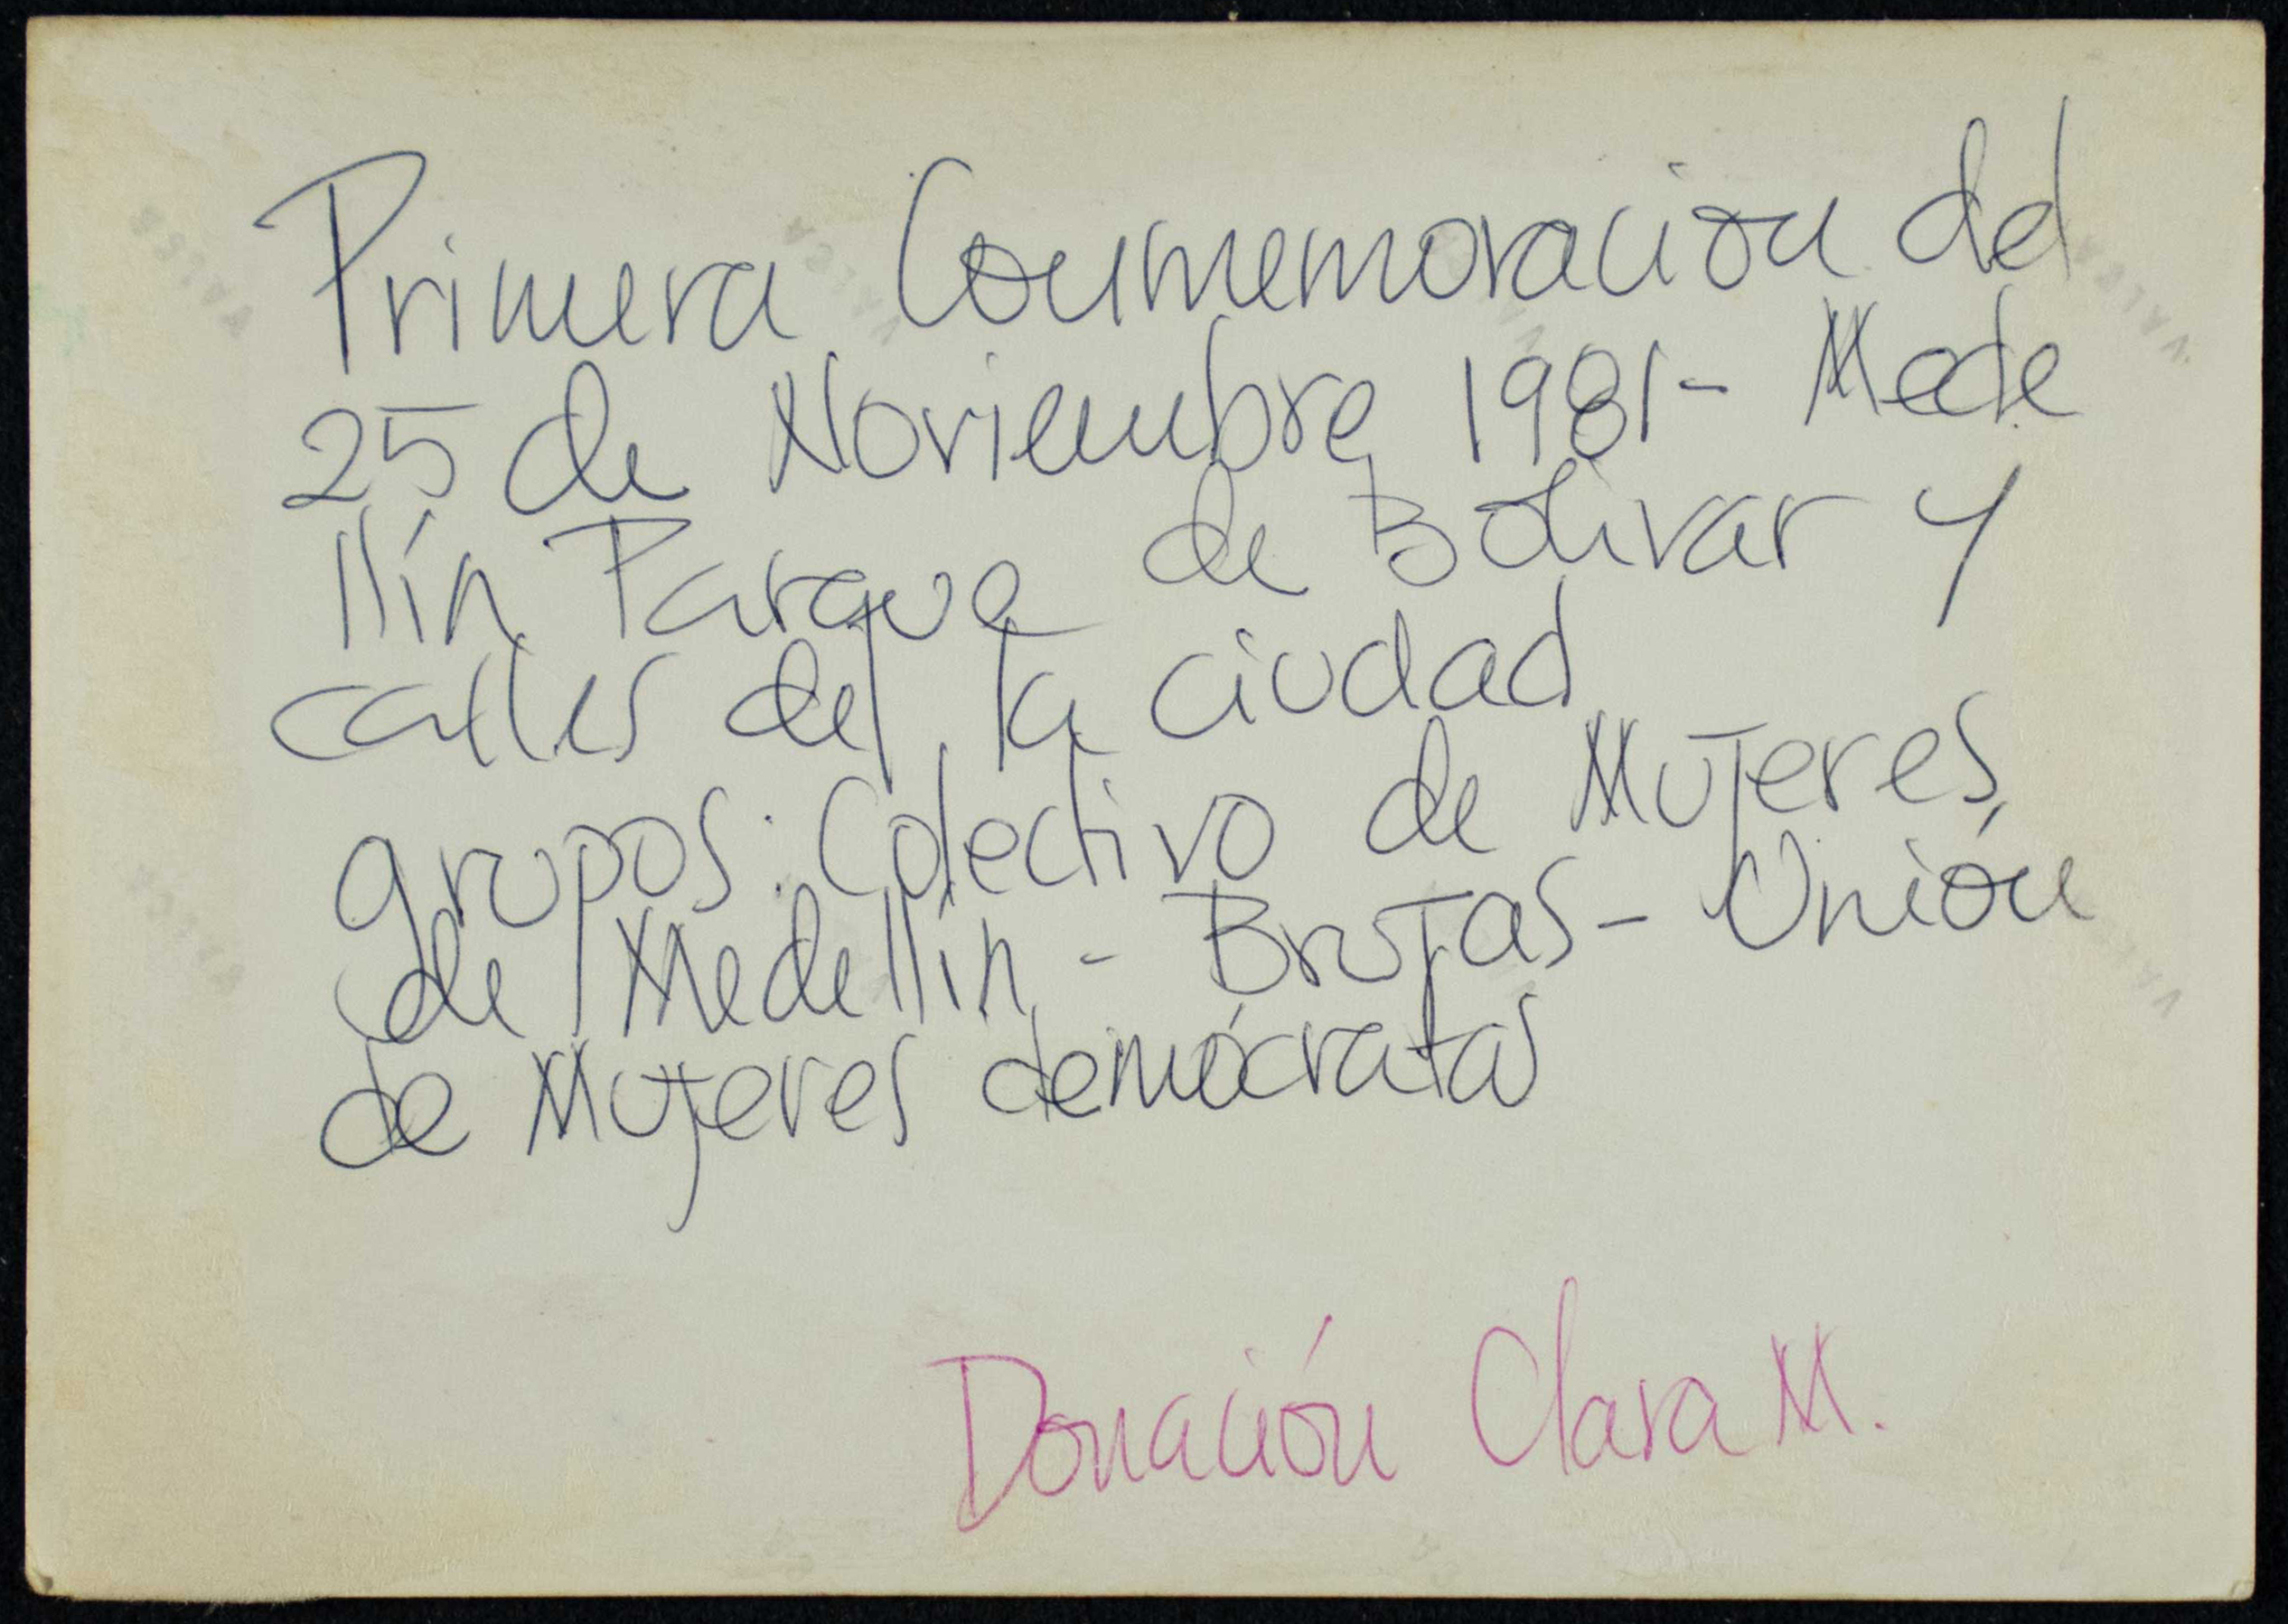 Primera Conmemoracion del
25 de Noviembre 1981- Mede
llín Parque de Bolívar y
calles de la ciudad
grupos: Colectivo de Mujeres
de Medellín - Brujas - Unión
de Mujeres demócratas
Donación Clara M.